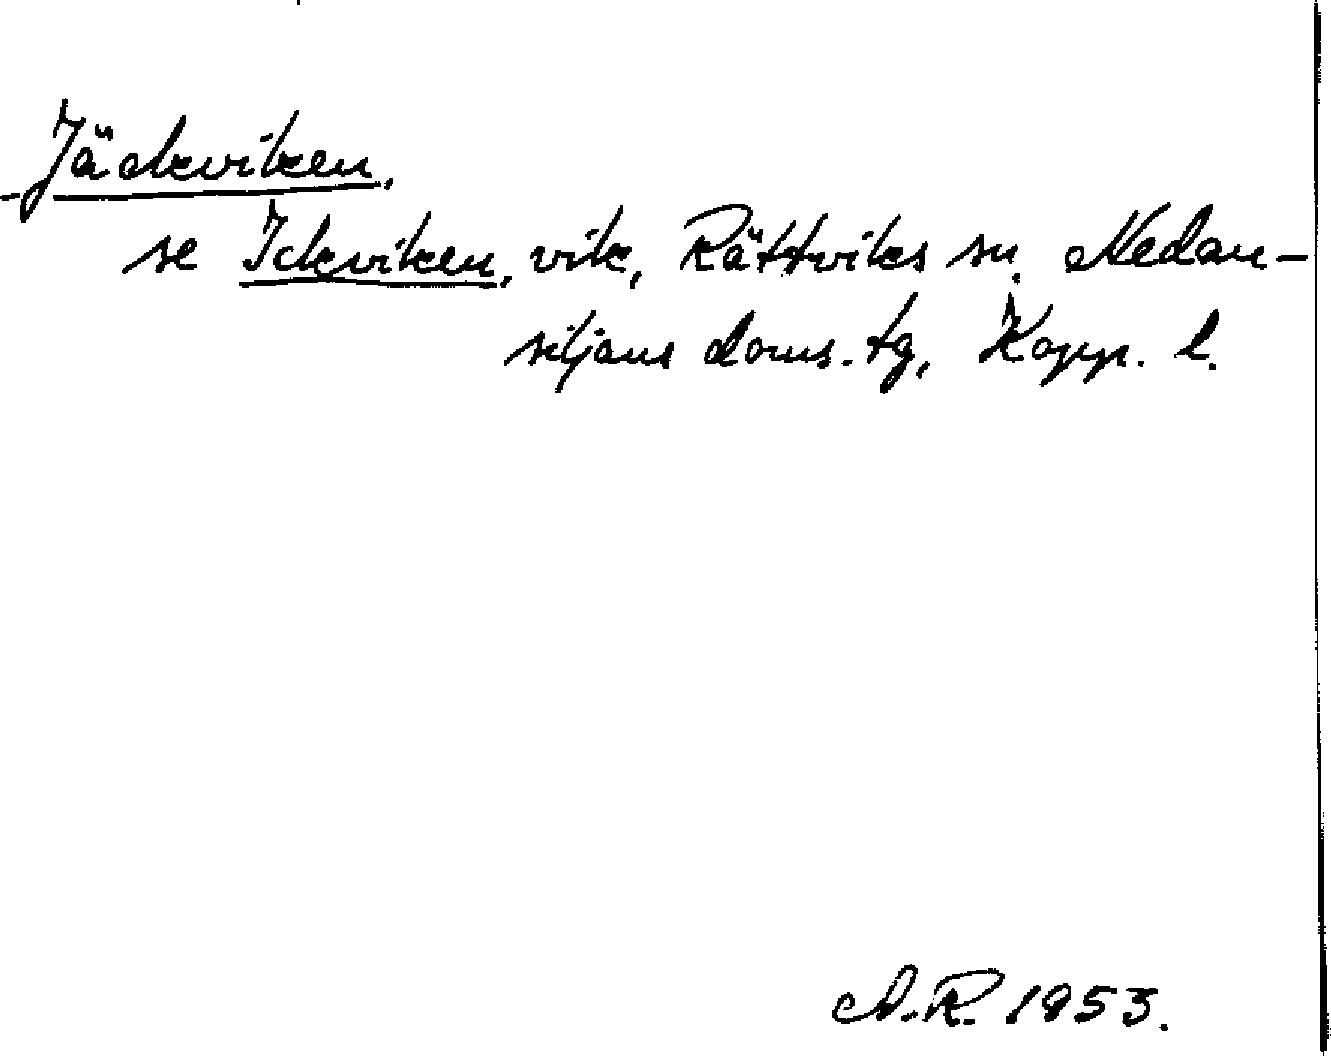 Jäckviken,
se Ickviken, vik, Rättviks sn, Nedan-
siljans doms. tg, Kopp. l.
A.R. 1953.